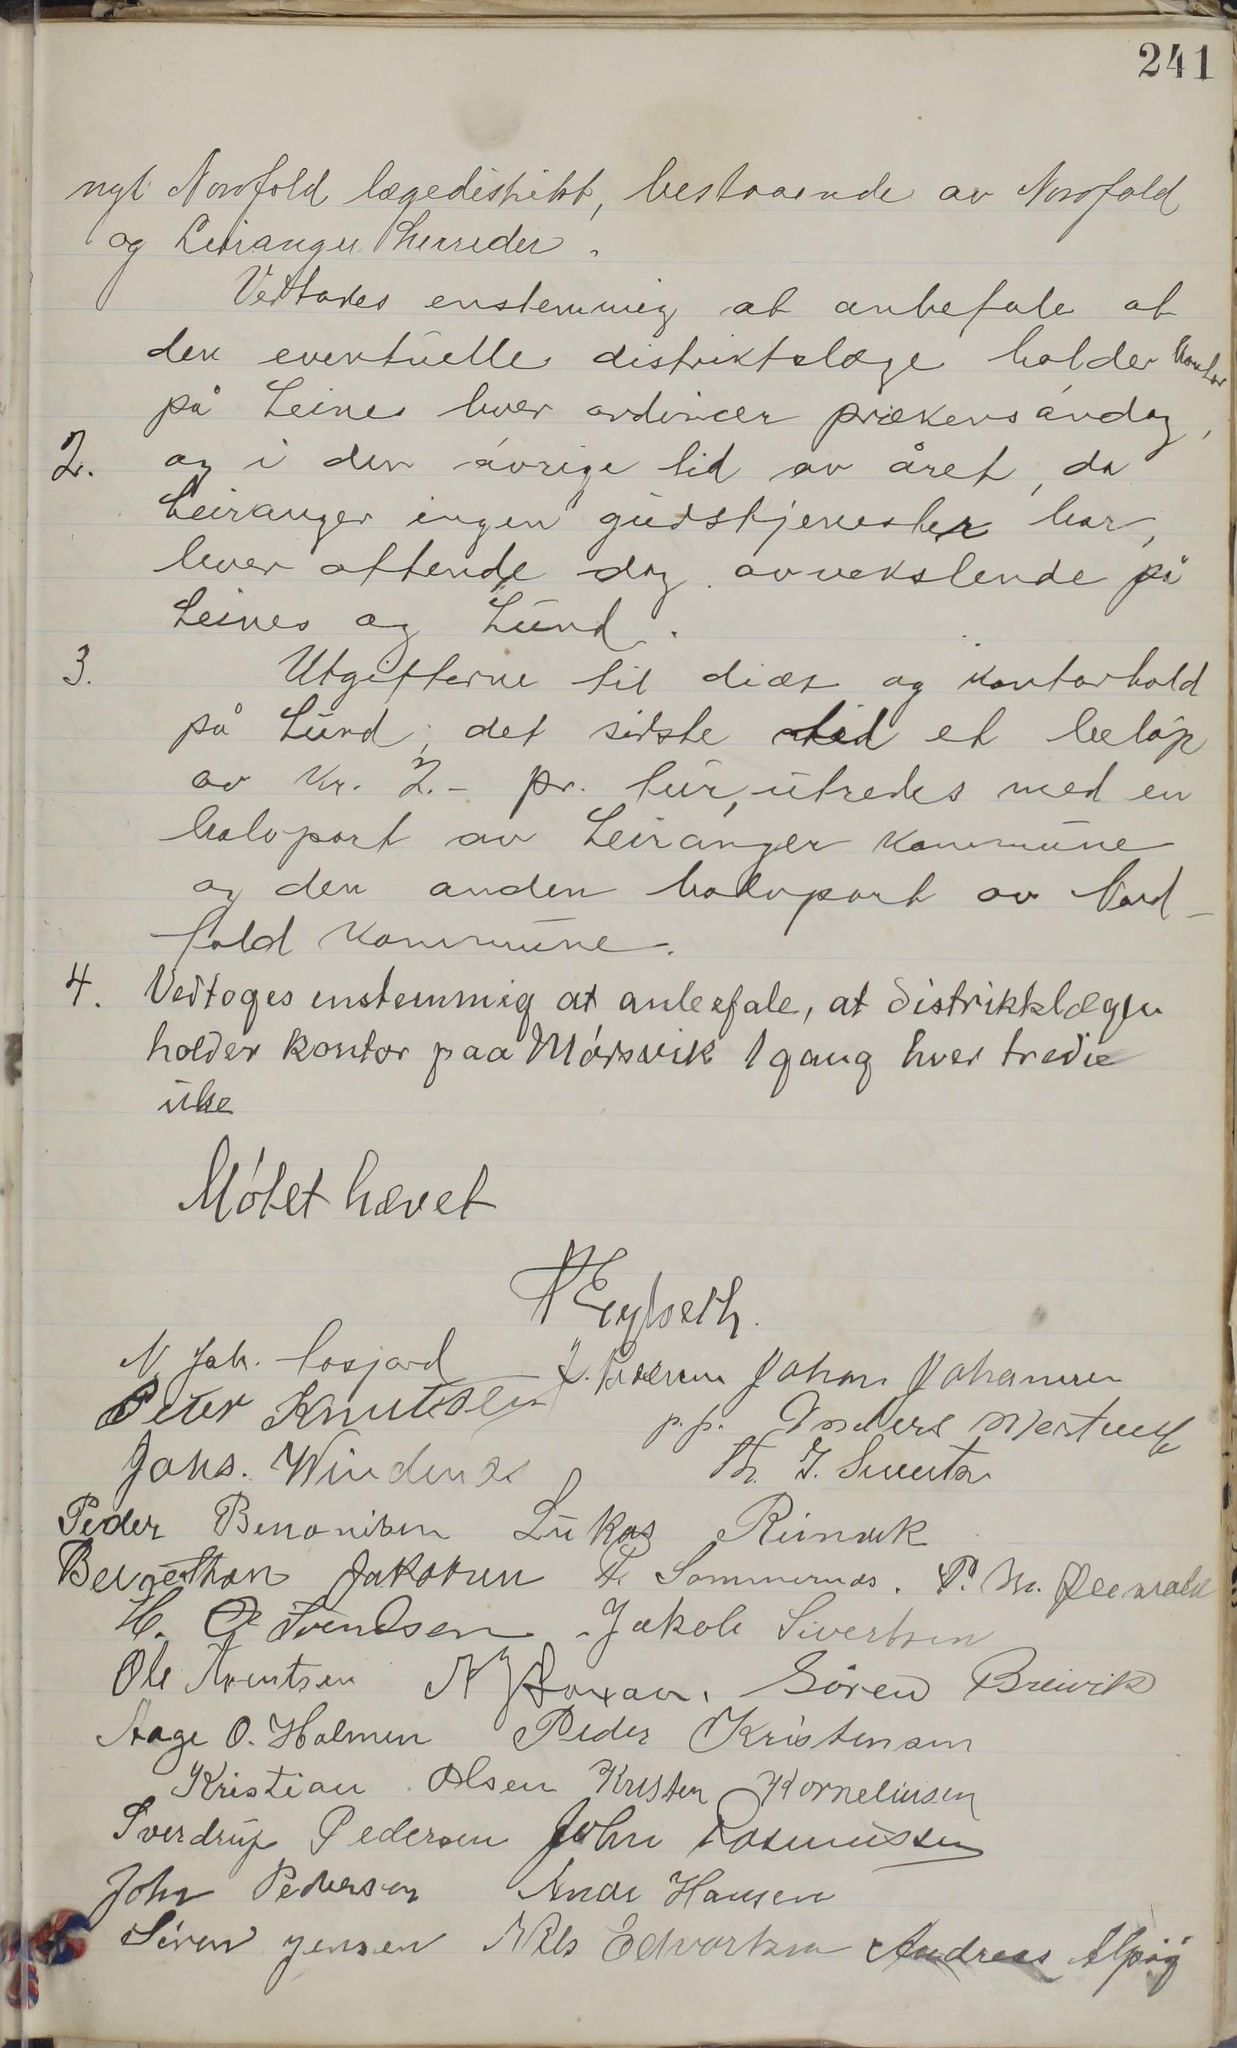 241
nyt Nordfold lægedistrikt, bestaaende av Nordfold
og Leiranger herreder.
Vedtages enstemmig at anbefale at
den eventuelle distriktslæge holder kontor
på Leines hver ordinær prækensøndag,
2. og i den øvrige tid av året, da
Leiranger ingen gudstjenester har,
hver ottende dag avvekslende på
Leines og Lund.
3. Utgifterne til diæt og kontorhold
på Lund, det sidste med et beløp
av kr. 2.- pr. tur, utredes med en
halvpart av Leiranger kommune
og den anden halvpart av Nord-
fold kommune.
4. Vedtoges enstemmig at anbefale, at distriktslægen
holder kontor paa Mørsvik 1 gang hver tredie
uke
Møtet hævet
N. Joh. Johan Johansen
Peter Knutsen p.p. Anders
Johs. Th. J.
Peder Benonisen Lukas Rimvik
Bergethon Jakobsen Fr. Sommernes. P. M.
H. Svendsen Jakob Sivertsen
Ole Arentsen Søren Breivik
Aage O. Holmen Peder Kristensen
Kristian Olsen Kristen Korneliusen
Sverdrup Pedersen John Rasmussen
John Pedersen Hansen
Søren Jensen Nils Edvartsen Andreas